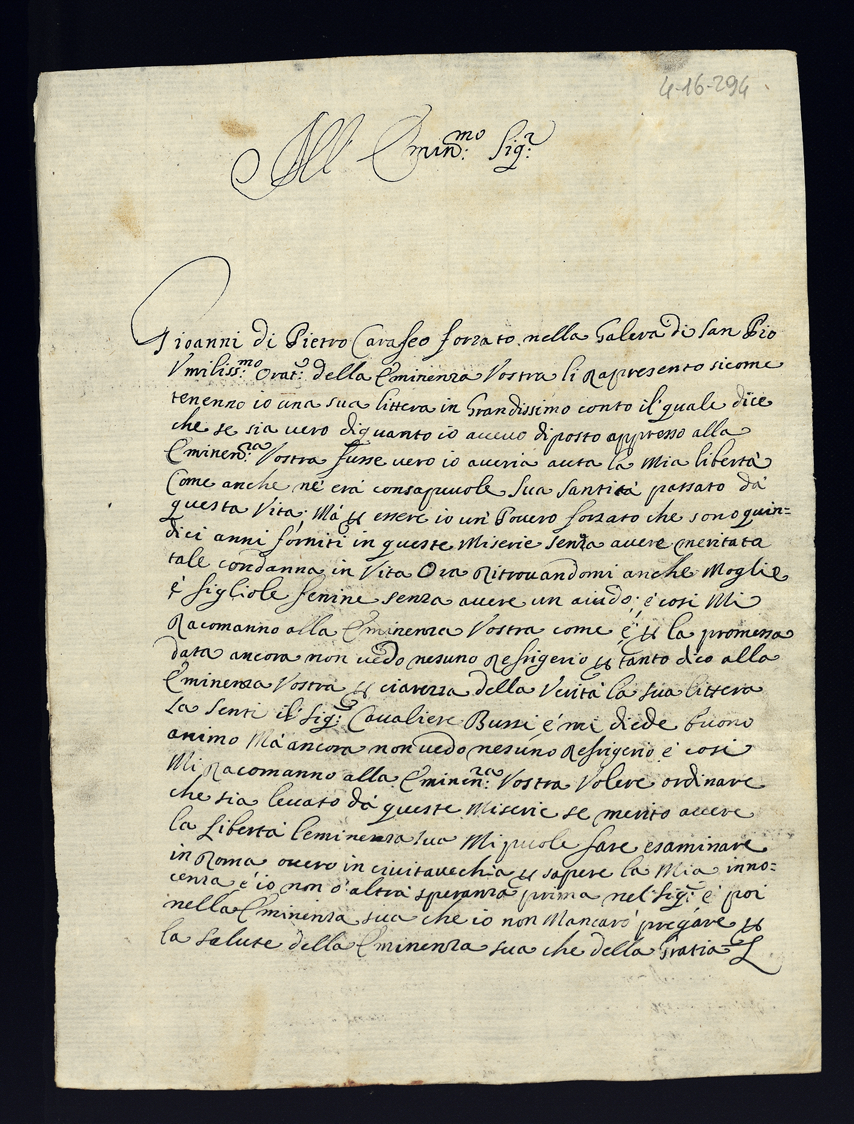 4-16-294
All Eminmo: Sigr:
Gioanni di Pietro Carafeo forzato nella Galera di San Pio
Vmilissmo: Orat:e della Eminenza Vostra li Rapresento sicome
tenenno io una sua littera in Grandissimo conto il quale dice
che se sia vero diquanto io avevo diposto appresso alla
Eminenza: Vostra fusse vero io averia auta la Mia libertà
Come anche ne erà consapuvole Sua Santità passato dà
questa Vita: Mà per essere io un Povero forzato che sono quin=
dici anni forniti in queste Miserie senza avere meritata
tale condanna in Vita Ora Ritrovandomi anche Moglie
è figliole fenine senza avere un aiudo: è cosi Mi
Racomanno alla Eminenza Vostra come è per la promessa
data ancora non vedo nesuno Refrigerio per tanto dico alla
Eminenza Vostra per ciarezza della Verità la sua littera
La Senti il Sigr: Cavaliere Bussi è mi diede buono
animo Mà ancora non vedo nesuno Refrigerio è cosi
Mi Racomanno alla Eminenza: Vostra Volere ordinare
che sia levato dà queste Miserie se merito avere
la Libertà leminenza sua Mi puole fare esaminare
in Roma overo in civitavechia per sapere la Mia inno=
cenza è io non ò altra speranza prima nel Sigr: è poi
nella Eminenza sua che io non Mancarò pregare per
la salute della Eminenza sua che della Gratia